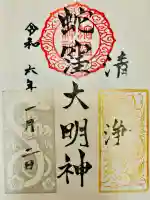 清
浄
蛇窪大明神
令和六年一月二日